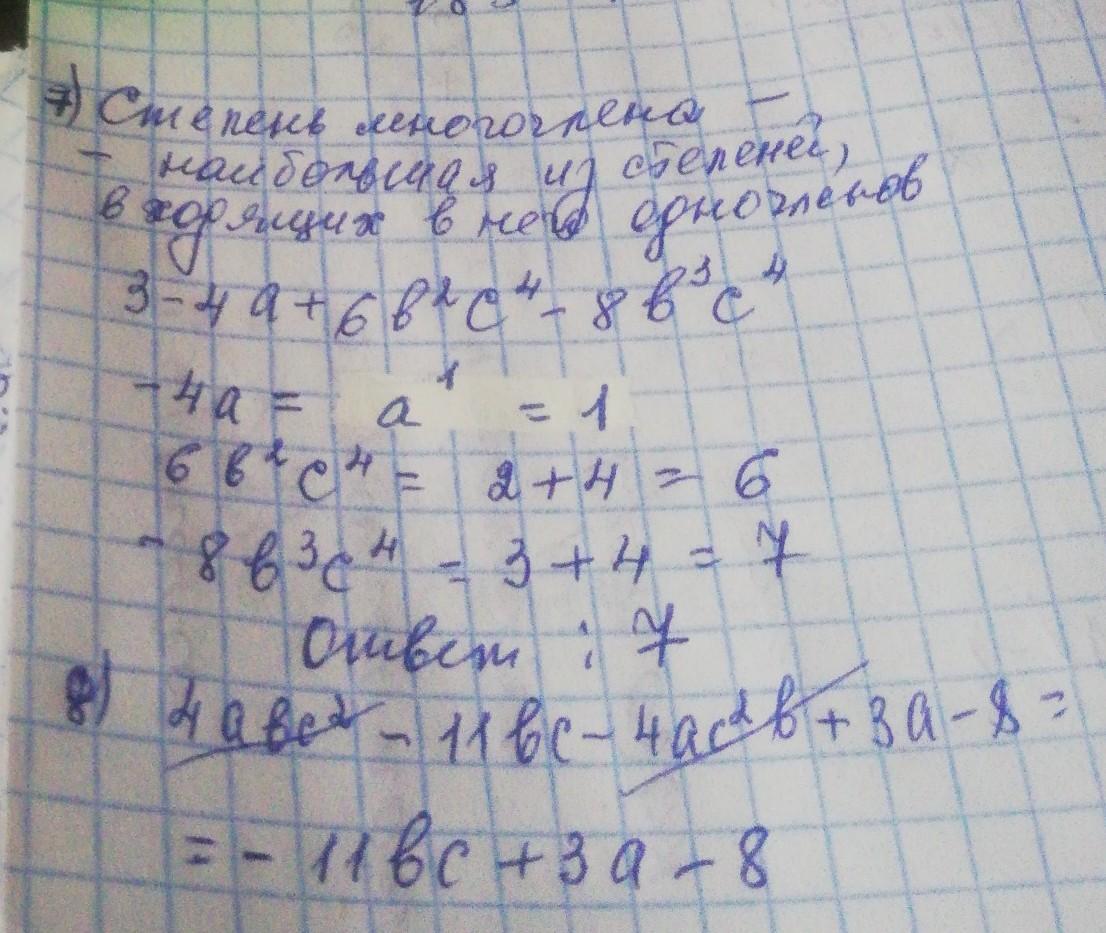 7) Степень многочлена –
– наибольшая из степеней,
входящих в него одночленов
3-4a+6b²c⁴-8b³c⁴
-4a = a¹ = 1
6b²c⁴ = 2+4 = 6
-8b³c⁴ = 3+4 = 7
Ответ : 7
8) 4abc² - 11bc - 4ac²b + 3a - 8 =
= - 11bc + 3a - 8